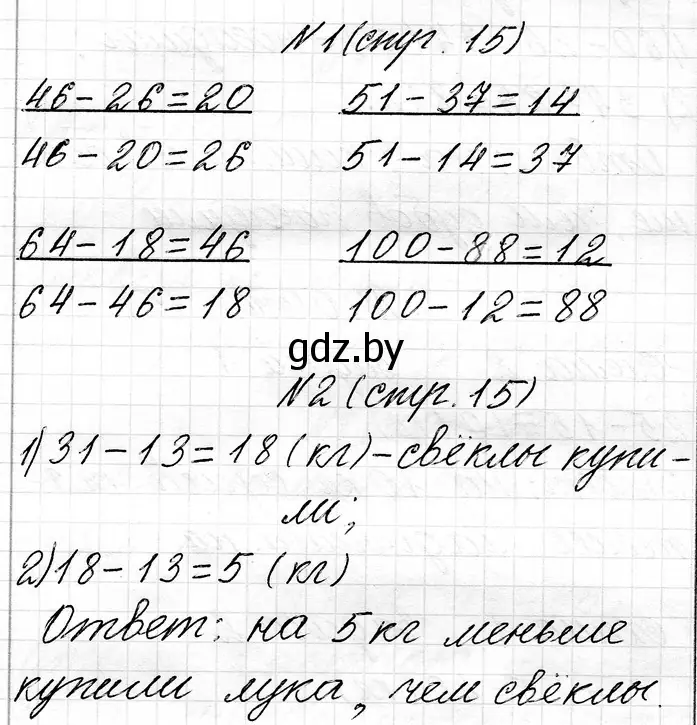 №1 (стр. 15)
46-26=20 51-37=14
46-20=26 51-14=37
64-18=46 100-88=12
64-46=18 100-12=88
gdz.by
№2 (стр. 15)
1) 31-13=18 (кг) - свёклы купи-
ли;
2) 18-13=5 (кг)
Ответ: на 5 кг меньше
купили лука, чем свёклы.